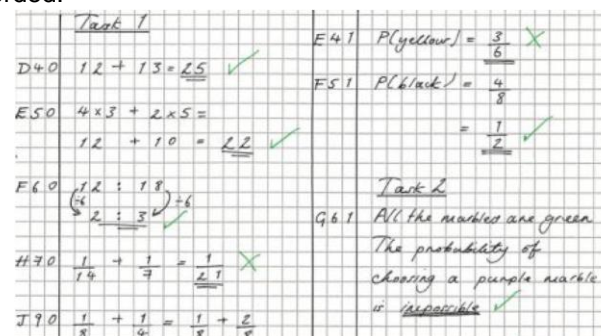 Task 1
D40 12 + 13 = 25 ✓
E50 4 × 3 + 2 × 5 =
12 + 10 = 22 ✓
F60 12 : 18
÷6 ÷6
2 : 3 ✓
H70 1/14 + 1/7 = 1/21 ✗
J90 1/8 + 1/4 = 1/8 + 2/8
E41 P(yellow) = 3/6 ✗
F51 P(black) = 4/8
= 1/2 ✓
Task 2
G61 All the marbled are green
The probability of
choosing a purple marble
is impossible ✓